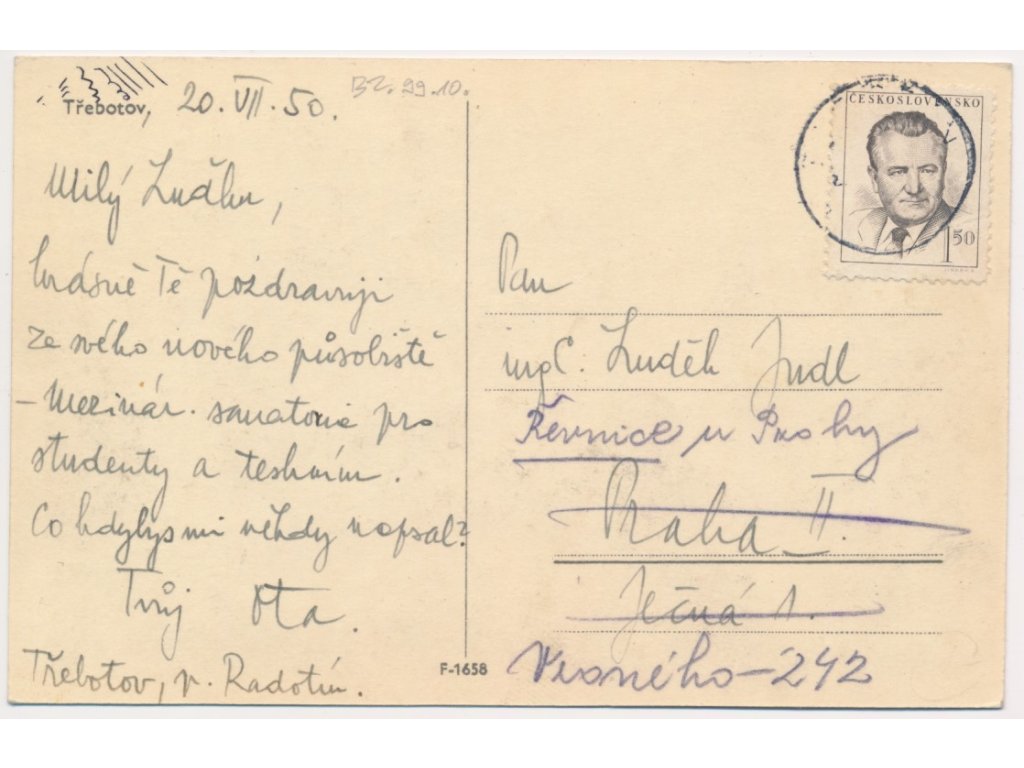 Třebotov, 20. VII. 50.
BZ. 99.10.
Milý Luďku,
krásně Tě pozdravuji
ze svého nového působiště
- mezinár. sanatoria pro
studenty a teskním.
Co kdybys mi někdy napsal?
Tvůj Ota.
Třebotov, p. Radotín.
F-1658
ČESKOSLOVENSKO
1 50
Pan
ingC. Luděk Judl
Řevnice u Prahy
Praha II.
Ječná 1.
242